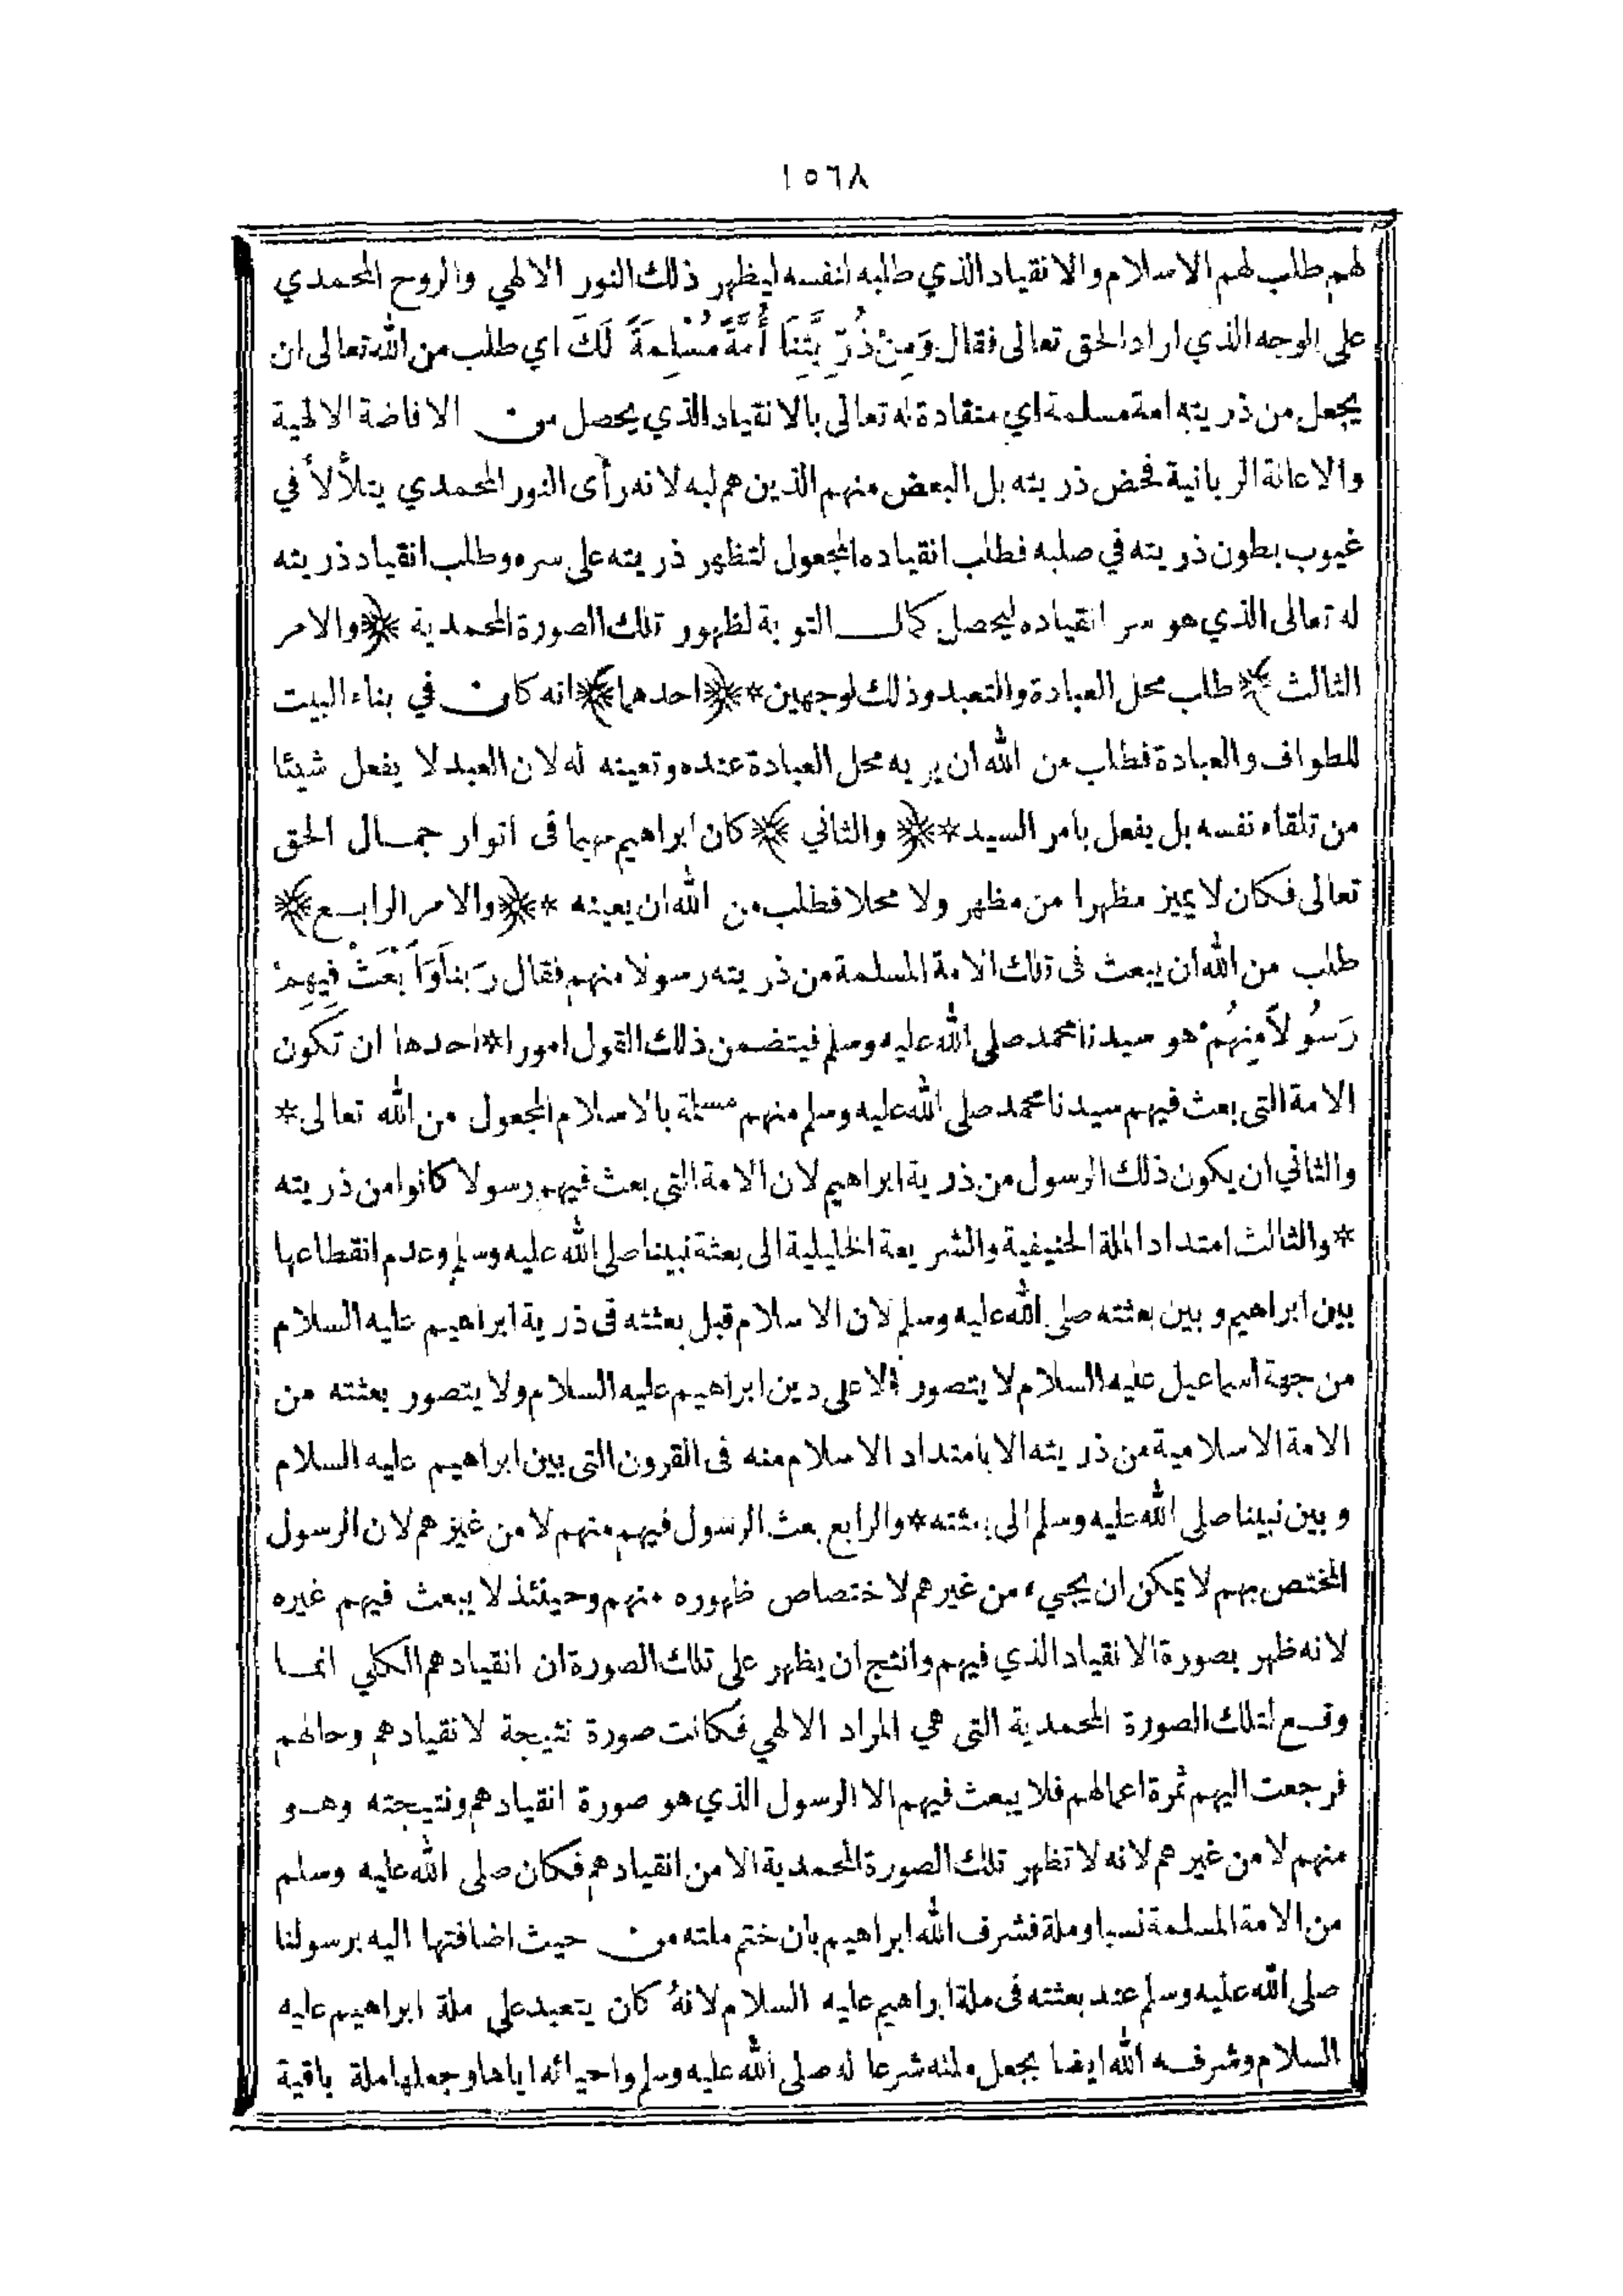 ١٥٦٨
لهم طلب لهم الاسلام والانقياد الذي طلبه لنفسه ليظهر ذلك النور الالهي والروح المحمدي
على الوجه الذي اراد الحق تعالى فقال وَمِنْ ذُرِّيَّتِنَا أُمَّةً مُسْلِمَةً لَكَ اي طلب من الله تعالى ان
يجعل من ذريته امة مسلمة اي منقادة له تعالى بالانقياد الذي يحصل من الافاضة الالهية
والاعانة الربانية فخض ذريته بل البعض منهم الذين هم لبه لانه رأى النور المحمدي يتلألأ في
غيوب بطون ذريته في صلبه فطلب انقياده المجعول لتظهر ذريته على سره وطلب انقياد ذريته
له تعالى الذي هو سر انقياده ليحصل كمال التوبة لظهور تلك الصورة المحمدية ﴿والامر
الثالث﴾ طلب محل العبادة والتعبد وذلك لوجهين * ﴿احدهما﴾ انه كان في بناء البيت
للطواف والعبادة فطلب من الله ان يريه محل العبادة عنده وتعينه له لان العبد لا يفعل شيئا
من تلقاء نفسه بل يفعل بامر السيد * ﴿والثاني﴾ كان ابراهيم مهيما فى انوار جمال الحق
تعالى فكان لا يميز مظهرا من مظهر ولا محلا فطلب من الله ان يعينه * ﴿والامر الرابع﴾
طلب من الله ان يبعث فى تلك الامة المسلمة من ذريته رسولا منهم فقال رَبنَا وَابْعَثْ فِيهِمْ
رَسُولاً مِنْهُمْ هو سيدنا محمد صلى الله عليه وسلم فيتضمن ذلك القول امورا * احدها ان تكون
الامة التى بعث فيهم سيدنا محمد صلى الله عليه وسلم منهم مسلمة بالاسلام المجعول من الله تعالى *
والثاني ان يكون ذلك الرسول من ذرية ابراهيم لان الامة التى بعث فيهم رسولا كانوا من ذريته
* والثالث امتداد الملة الحنيفية والشريعة الخليلية الى بعثة نبينا صلى الله عليه وسلم وعدم انقطاعها
بين ابراهيم وبين بعثته صلى الله عليه وسلم لان الاسلام قبل بعثته فى ذرية ابراهيم عليه السلام
من جهة اسماعيل عليه السلام لا يتصور الا على دين ابراهيم عليه السلام ولا يتصور بعثته من
الامة الاسلامية من ذريته الا بامتداد الاسلام منه فى القرون التى بين ابراهيم عليه السلام
وبين نبينا صلى الله عليه وسلم الى بعثته * والرابع بعث الرسول فيهم منهم لا من غيرهم لان الرسول
المختص بهم لا يمكن ان يجيء من غيرهم لاختصاص ظهوره منهم وحينئذ لا يبعث فيهم غيره
لانه ظهر بصورة الانقياد الذي فيهم وانتج ان يظهر على تلك الصورة ان انقيادهم الكلي انما
وقع لتلك الصورة المحمدية التى هي المراد الالهي فكانت صورة نتيجة لانقيادهم وحالهم
فرجعت اليهم ثمرة اعمالهم فلا يبعث فيهم الا الرسول الذي هو صورة انقيادهم ونتيجته وهو
منهم لا من غيرهم لانه لا تظهر تلك الصورة المحمدية الا من انقيادهم فكان صلى الله عليه وسلم
من الامة المسلمة نسبا وملة فشرف الله ابراهيم بان ختم ملته من حيث اضافتها اليه برسولنا
صلى الله عليه وسلم عند بعثته فى ملة ابراهيم عليه السلام لانهُ كان يتعبد على ملة ابراهيم عليه
السلام وشرفه الله ايضا بجعل ملته شرعا له صلى الله عليه وسلم واحيائه اياها وجعلها ملة باقية